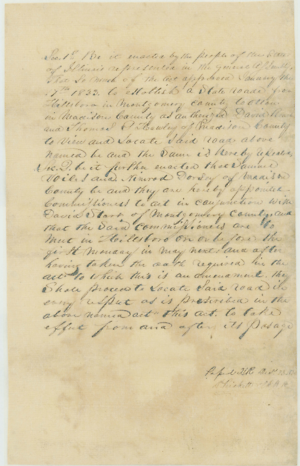 Sec 1st Be it enacted by the people of the State
of Illinois represented in the general Assembly
that so much of the act approved January the
1833 to Establish a State road from
Hillsboro in Montgomery County to Alton
in Madison County as
and Thomas of Madison County
to View and Locate Said road above
named be and the Same is hereby repealed
Sec 2 be it further enacted that Samuel
and Dorsey of Madison
County be and they are hereby appointed
Commissioners to act in conjunction with
David of Montgomery County and
that the Said Commissioners are to
meet in Hillsboro on or before the
first Monday in may next and after
having taken the oath required in the
act to which this is an amendment they
Shall proceed to Locate Said road in
every respect as is prescribed in the
above named act this act to take
effect from and after its passage